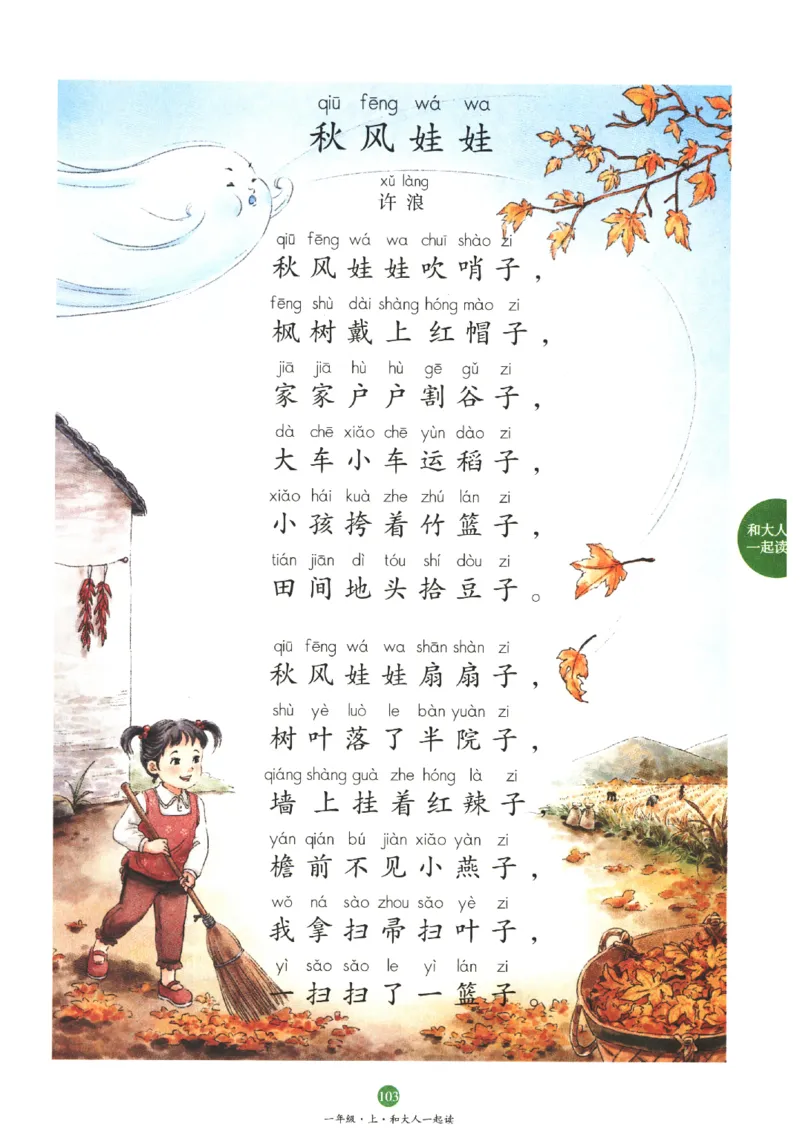 qiū fēng wá wa
秋风娃娃
xǔ làng
许浪
qiū fēng wá wa chuī shào zi
秋风娃娃吹哨子，
fēng shù dài shàng hóng mào zi
枫树戴上红帽子，
jiā jiā hù hù gē gǔ zi
家家户户割谷子，
dà chē xiǎo chē yùn dào zi
大车小车运稻子，
xiǎo hái kuà zhe zhú lán zi
小孩挎着竹篮子，
tián jiān dì tóu shí dòu zi
田间地头拾豆子。
qiū fēng wá wa shān shàn zi
秋风娃娃扇扇子，
shù yè luò le bàn yuàn zi
树叶落了半院子，
qiáng shàng guà zhe hóng là zi
墙上挂着红辣子，
yán qián bú jiàn xiǎo yàn zi
檐前不见小燕子，
wǒ ná sào zhou sǎo yè zi
我拿扫帚扫叶子，
yì sǎo sǎo le yì lán zi
一扫扫了一篮子。
和大人
一起读
103
一年级·上·和大人一起读